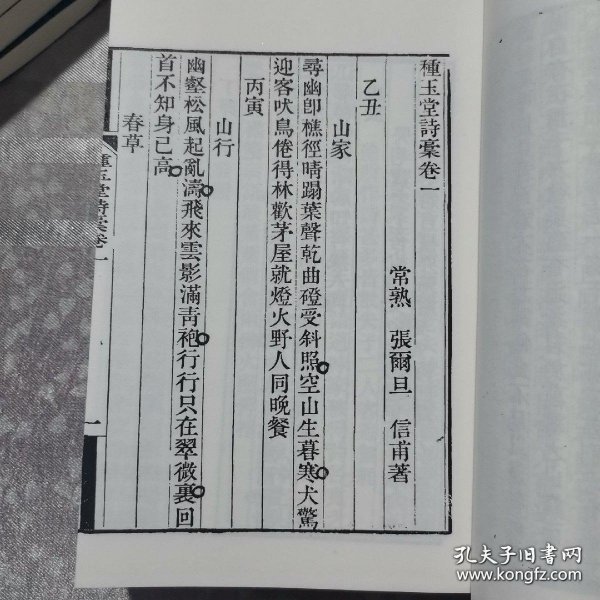 種玉堂詩稾卷一
常熟 張爾旦 信甫著
乙丑
山家
尋幽卽樵徑晴蹋葉聲乾曲磴受斜照空山生暮寒犬驚
迎客吠鳥倦得林歡茅屋就燈火野人同晚餐
丙寅
山行
幽壑松風起亂濤飛來雲影滿靑袍行行只在翠微裏回
首不知身已高
春草
種玉堂詩稾卷一
一
孔夫子旧书网
www.kongfz.com